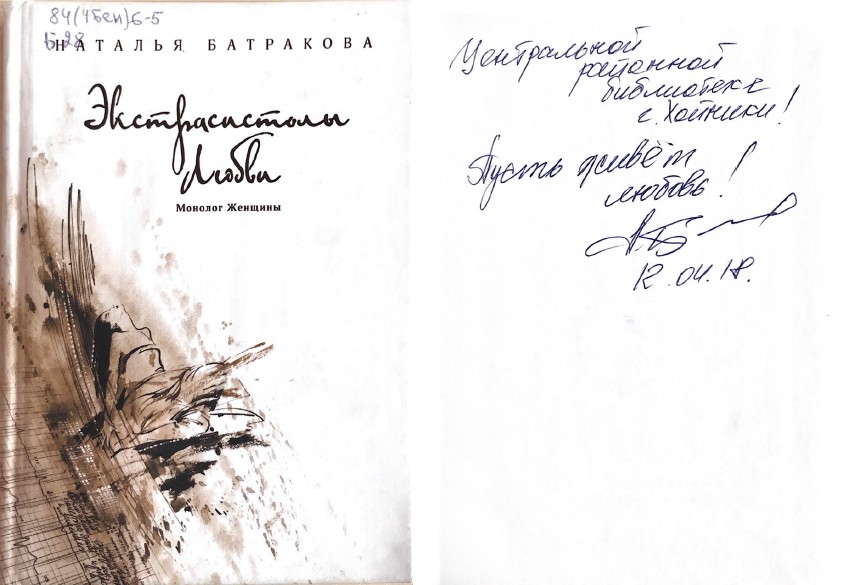 84(4Беи)6-5
Б28
НАТАЛЬЯ БАТРАКОВА
Экстрасистолы
Любви
Монолог Женщины
Центральной
районной
библиотеке
г. Хойники!
Пусть живёт
любовь!
12.04.18.